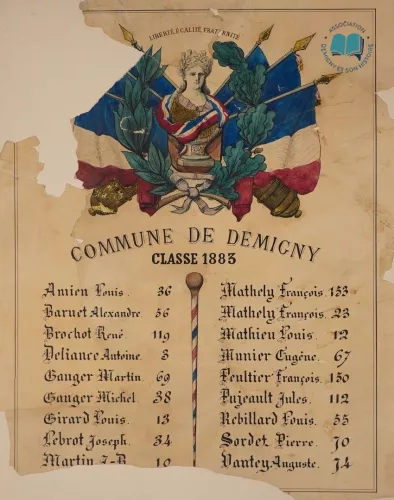 LIBERTÉ, ÉGALITÉ, FRATERNITÉ
ASSOCIATION
DEMIGNY ET SON HISTOIRE
COMMUNE DE DEMIGNY
CLASSE 1883
Amien Louis. 36
Baruet Alexandre 56
Brochot René 119
Deliance Antoine. 3
Ganger Martin. 69
Ganger Michel. 38
Girard Louis. 13
Lebrot Joseph. 34
Martin J-B. 10
Mathely François. 153
Mathely François. 23
Mathieu Louis. 12
Munier Eugène. 67
Peultier François. 150
Pujeault Jules. 112
Rebillard Louis. 55
Sordet Pierre. 70
Vantey Auguste. 74